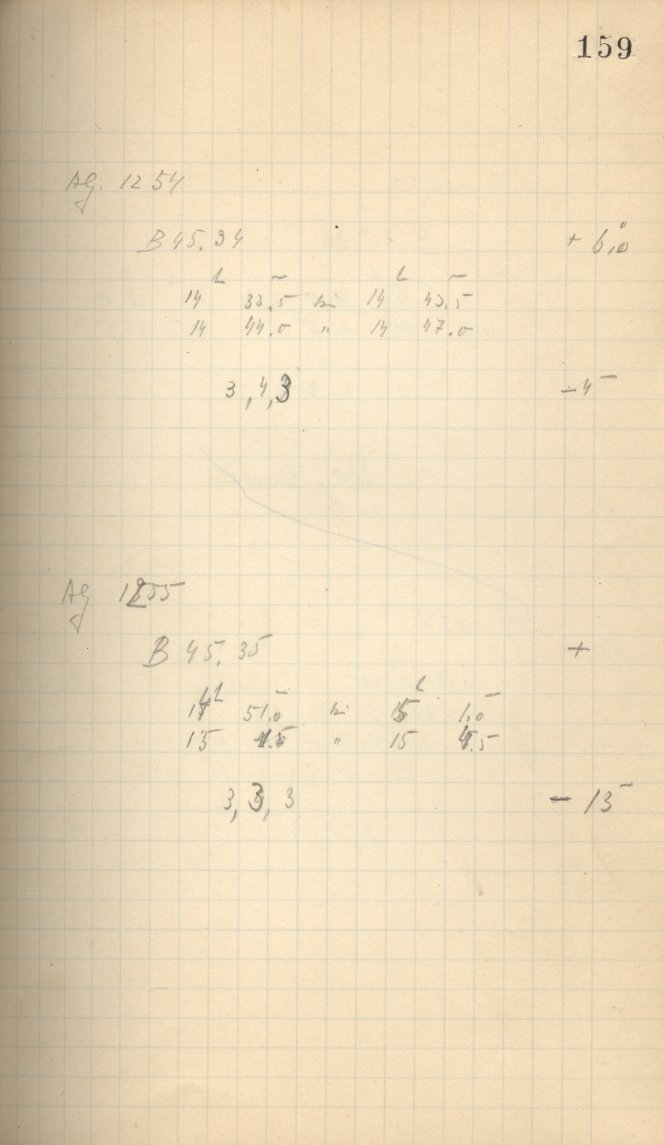 159
AG. 1254
B 45.34 + 6,0°
h m h m
14 33.5 bis 14 43.5
14 44.0 " 14 47.0
3, 4, 3 - 4m
AG 1255
B 45.35 +
h m h m
14 51.0 bis 15 1.0
15 1.5 " 15 4.5
3, 3, 3 - 13m